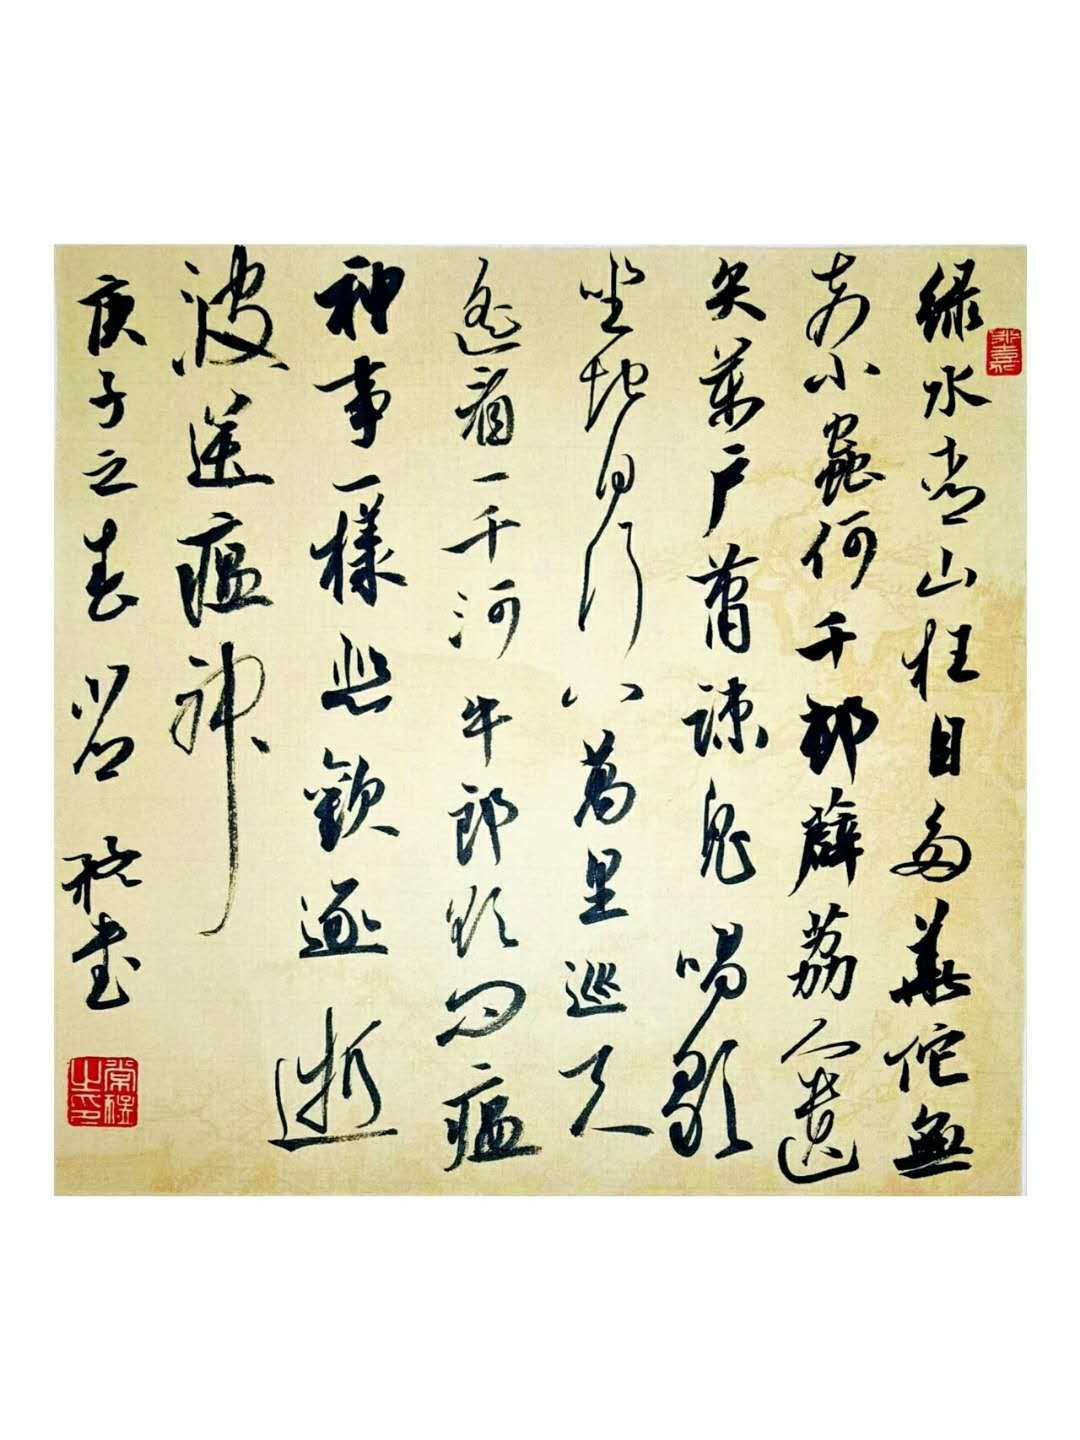 緑水青山枉自多華佗無
奈小蟲何千邨薜荔人遺
矢萬戶蕭疎鬼唱歌
坐地日行八萬里巡天
遙看一千河牛郎欲問瘟
神事一樣悲歡逐逝
波送瘟神
庚子之春 書